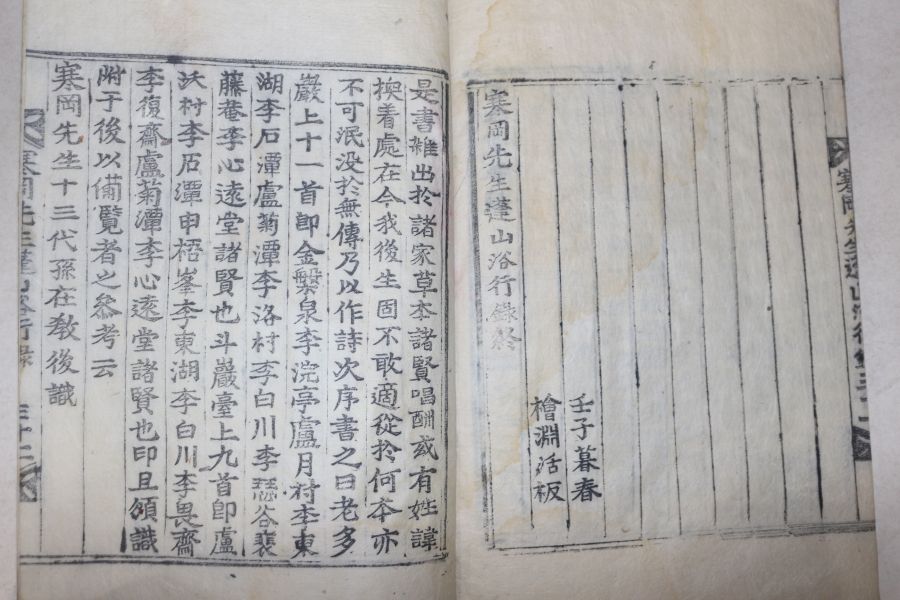 寒岡先生蓬山浴行錄
壬子暮春
檜淵活板
寒岡先生蓬山浴行錄終
是書雜出於諸家草本諸賢唱酬或有姓諱
換着處在今我後生固不敢適從於何本亦
不可泯没於無傳乃以作詩次序書之曰老多
巖上十一首即金槃泉李浣亭盧月村李東
湖李石潭盧菊潭李洛村李白川李瑟谷裵
藤菴李心遠堂諸賢也斗巖臺上九首即盧
沃村李石潭申梧峯李東湖李白川李畏齋
李復齋盧菊潭李心遠堂諸賢也印且頒識
附于後以備覽者之叅考云
寒岡先生十三代孫在敎後識
寒岡先生蓬山浴行錄 三十二